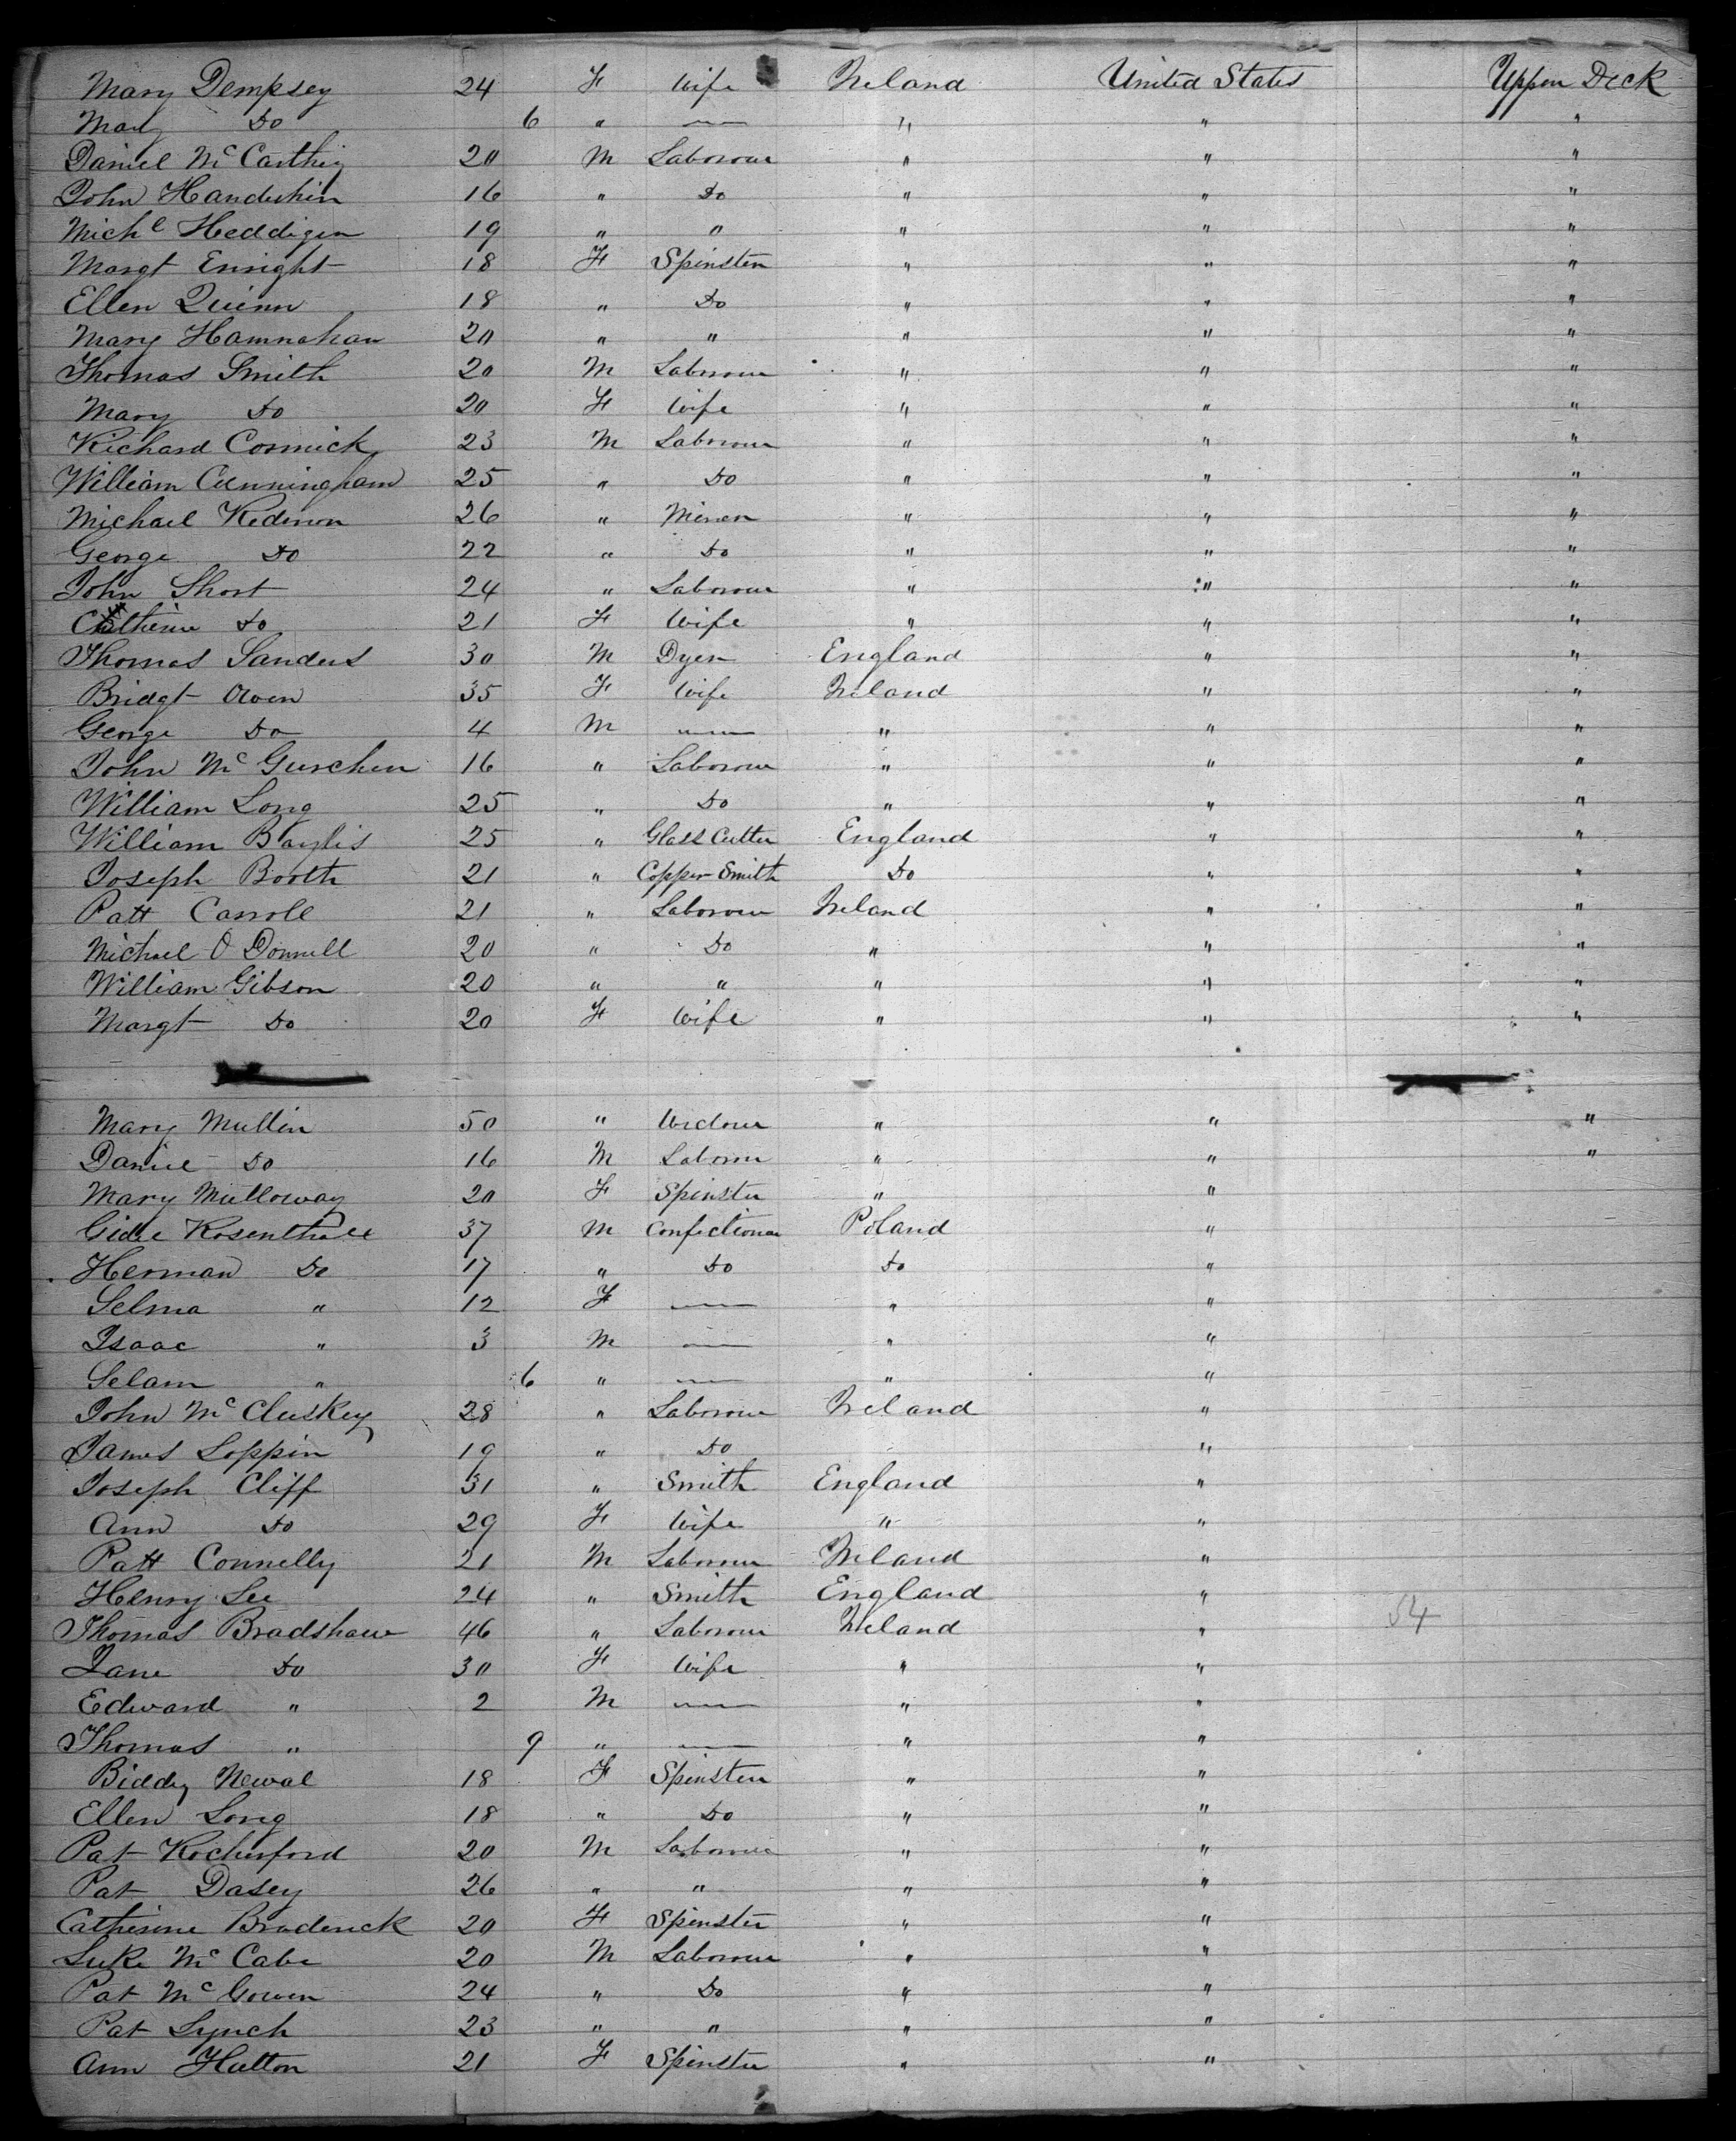 Mary Dempsey 24 F Wife Ireland United States Upper Deck
Mary Do 6 " — " " "
Daniel McCarthy 20 M Laborour " " "
John Handishin 16 " Do " " "
Michl Heddigin 19 " " " " "
Margt Enright 18 F Spinster " " "
Ellen Quinn 18 " Do " " "
Mary Hamnahan 20 " " " " "
Thomas Smith 20 M Laborour " " "
Mary Do 20 F Wife " " "
Richard Cormick 23 M Laborour " " "
William Cunningham 25 " Do " " "
Michael Kedenon 26 " Miner " " "
George Do 22 " Do " " "
John Short 24 " Laborour " " "
Catherine Do 21 F Wife " " "
Thomas Sanders 30 M Dyer England " "
Bridgt Owen 35 F Wife Ireland " "
George Do 4 M — " " "
John Mc 16 " Laborour " " "
William Long 25 " Do " " "
William Baylis 25 " Glass Cutter England " "
Joseph Booth 21 " Copper Smith Do " "
Patt Carroll 21 " Laborour Ireland " "
Michael O Donnell 20 " Do " " "
William Gibson 20 " " " " "
Margt Do 20 F Wife " " "
Mary Mullin 50 " Widow " " "
Daniel Do 16 M Laborour " " "
Mary Mulloway 20 F Spinster " "
Rosenthall 37 M Confectioner Poland "
Herman Do 17 " Do Do "
Selma " 12 F — " "
Isaac " 3 M — " "
Selam " 6 " — " "
John McCluskey 28 " Laborour Ireland "
James Loppin 19 " Do "
Joseph Cliff 31 " Smith England "
Ann Do 29 F Wife " "
Patt Connelly 21 M Laborour Ireland "
Henry Lee 24 " Smith England "
Thomas Bradshaw 46 " Laborour Ireland " 54
Jane Do 30 F Wife " "
Edward " 2 M — " "
Thomas " 9 " — " "
Biddy Newal 18 F Spinster " "
Ellen Long 18 " Do " "
Pat Rocherford 20 M Laborour " "
Pat Dasey 26 " " " "
Catherine Broderick 20 F Spinster " "
Luke McCabe 20 M Laborour " "
Pat McGowen 24 " Do " "
Pat Lynch 23 " " " "
Ann Hutton 21 F Spinster " "